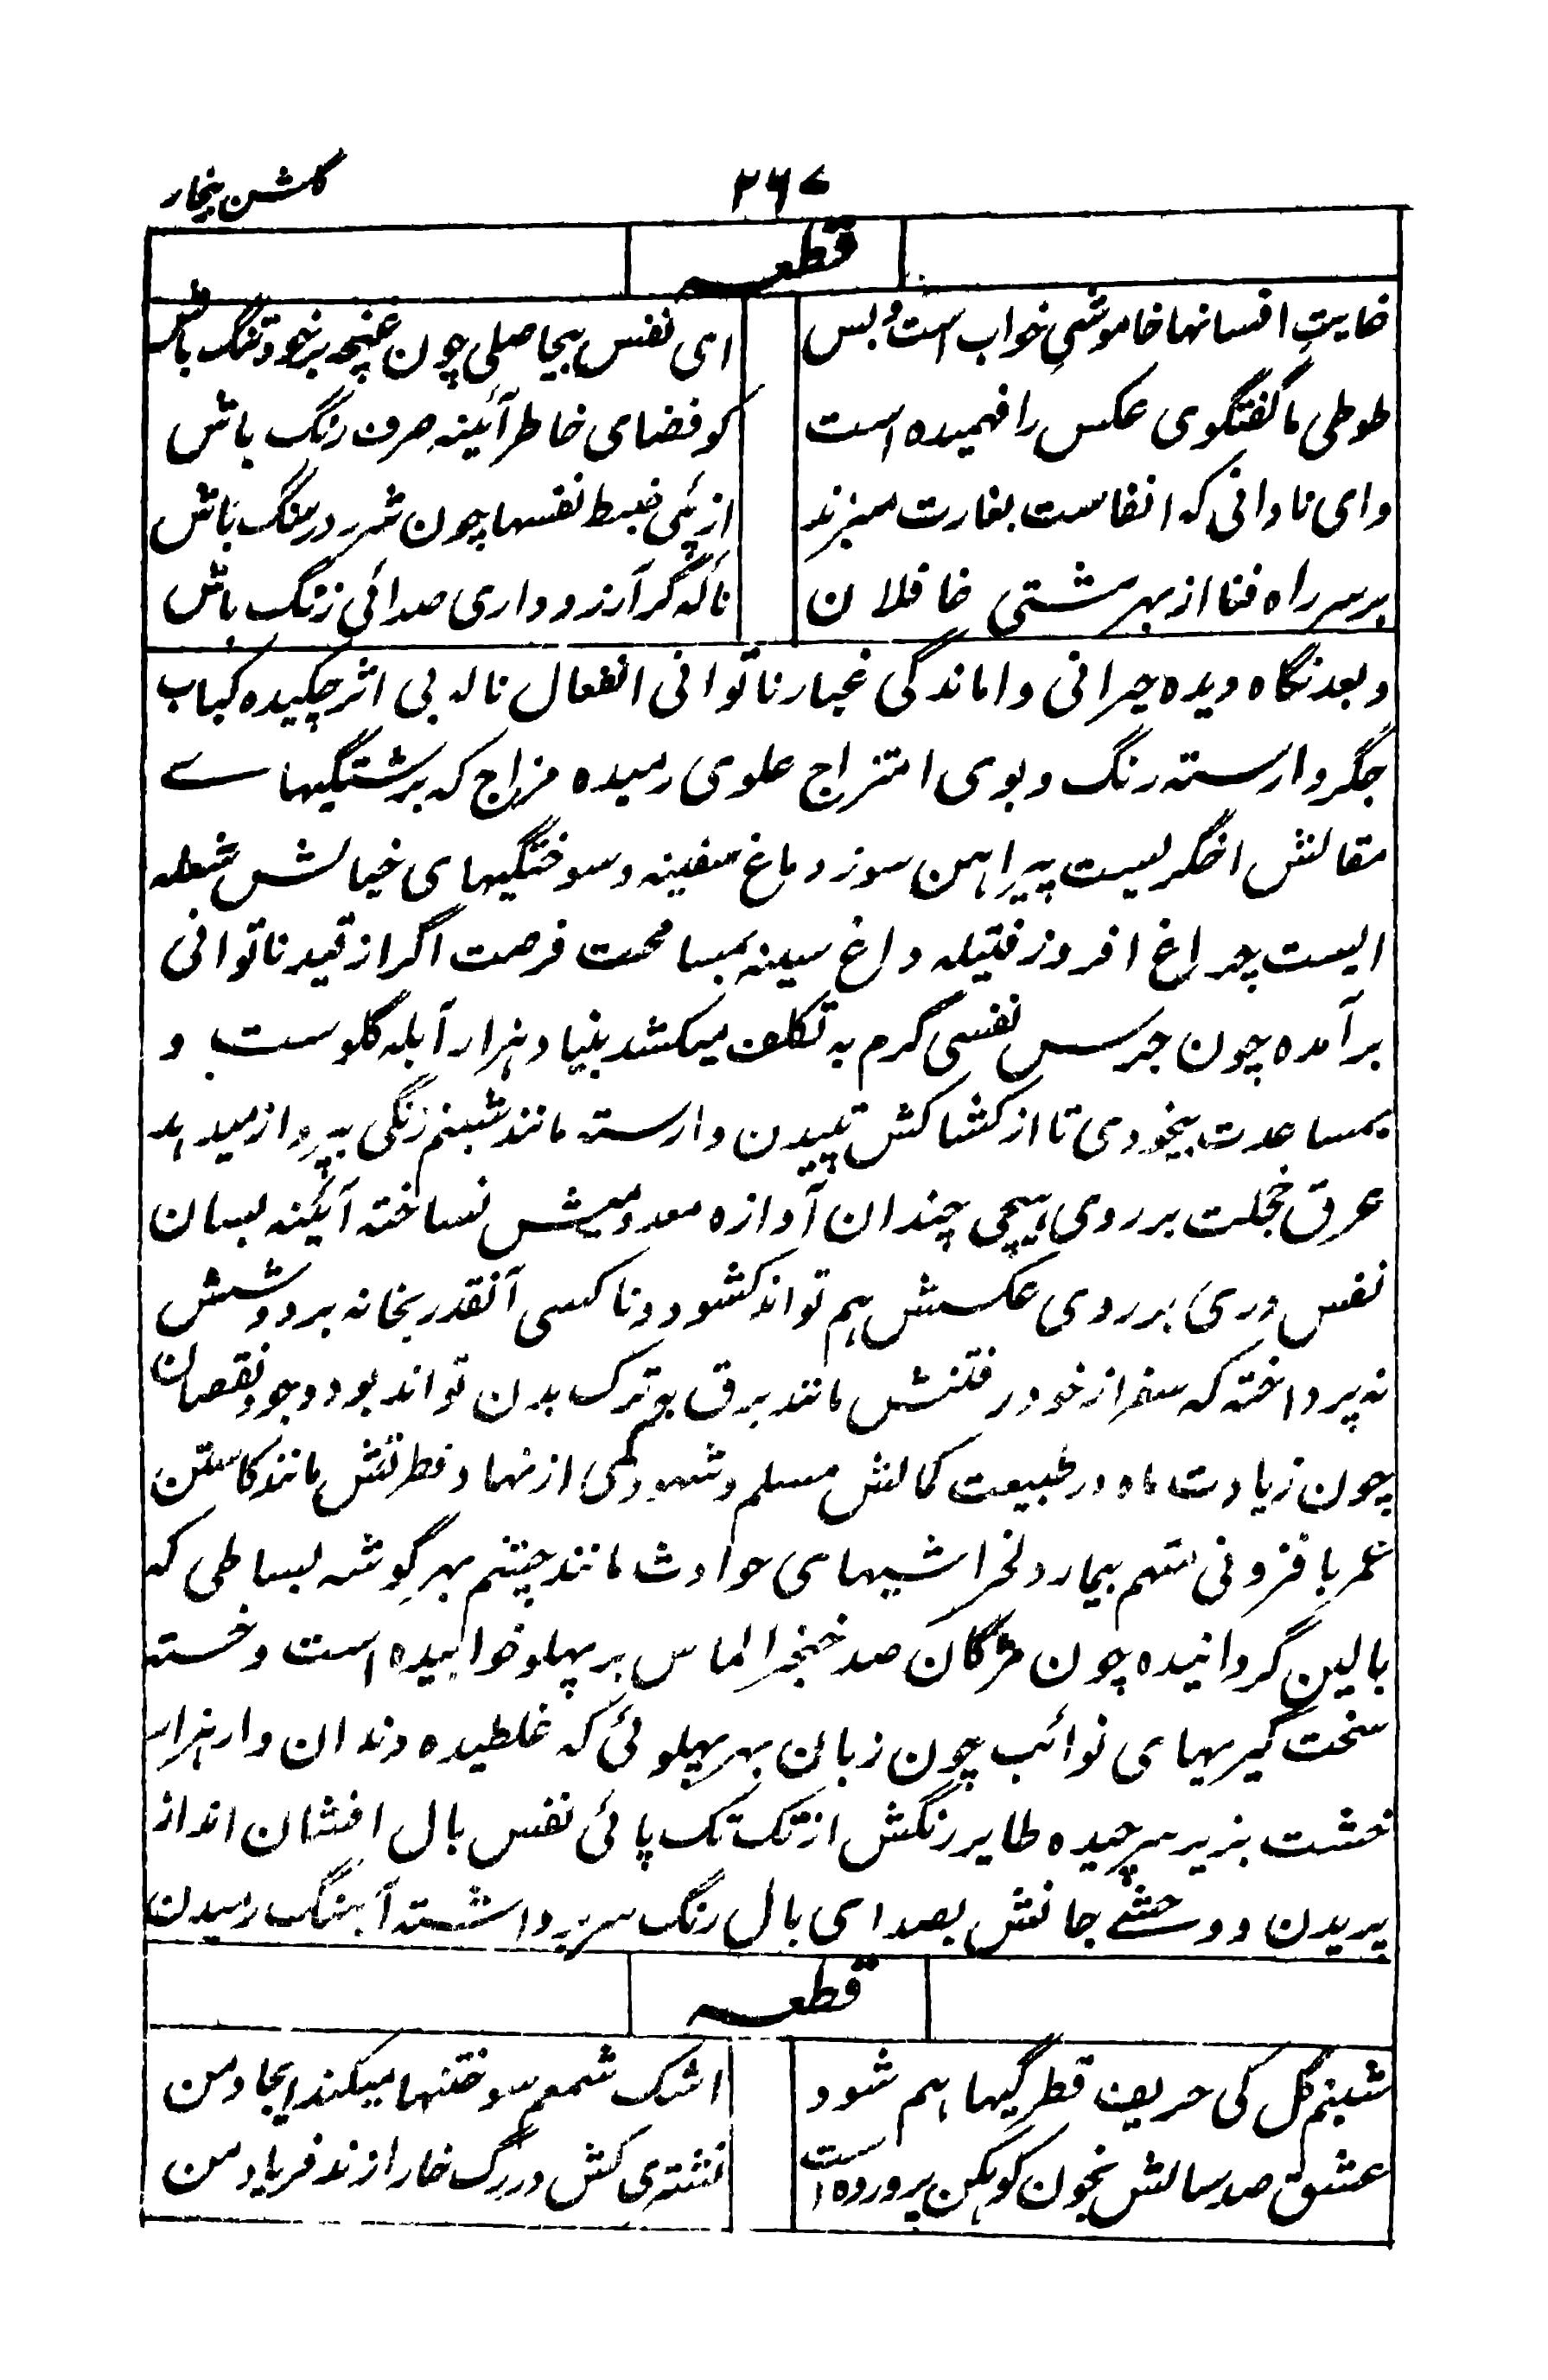 ۲۶۷
گلشن پنجار
قطعہ
غایتِ افسانها خاموشیِ خواب است و بس
ای نفس بیحاصلی چون غنچه بر خود تنگ باش
طوطی ما گفتگوی عکس را فهمیده است
کو فضای خاطر آئینه صرف زنگ باش
وای نادانی که انفاست بغارت میبرند
از پئی ضبط نفسها چون شرر در سنگ باش
برسر راه فنا از بهر مشتی غافلان
ناله گر آرزو داری صدائی زنگ باش
و بعد نگاه دیده حیرانی واماندگی غبار ناتوانی انفعال ناله بی اثر چکیده کباب
جگر وارسته رنگ و بوی امتزاج علوی رمیده مزاج که برشتگیهاے
مقالش اخگریست پیراهن سوز دماغ سفینه و سوختگیهای خیالش شعله
ایست چراغ افروز فتیله داغ سینه بمسامحت فرصت اگر از قید ناتوانی
برآمده چون جرس نفسی گرم به تکلف میکشد بنیاد هزار آبله گلوست و
بمساعدت بیخودی تا از کشاکش تپیدن وارسته مانند شبنم رنگی بپرواز میدهد
عرق خجلت بر روی هیچی چندان آوازه معدومیش نساخته آئینه بسان
نفس دری بر روی عکسش هم تواند کشود و ناکسی آنقدر بخانه بردوشش
نه پرداخته که سفر از خود رفتنش مانند برق بی ترک بدن تواند بود وجود نقصان
چون زیادت ماه در طبیعت کمالش مسلم و شهود کمی از نهاد فطرتش مانند کاستن
عمر با فزونی متهم بیمار دلخراشیهای حوادث مانند چشم بهر گوشه بساطی که
بالین گردانیده چون مژگان صد خنجر الماس بر پهلو خوابیده است و خسته
سخت گیریهای نوائب چون زبان بهر پهلوئی که غلطیده دندان وار هزار
خشت بزیر سر چیده طایر رنگش از تک تک پائی نفس بال افشان انداز
پریدن و وحشے جانش بصدای بال رنگ سر برداشته آهنگ رمیدن
قطعہ
شبنم گل کی حریف قطرگیها هم شود
اشک شمعم سوختنها میکند ایجاد من
عشق صد سالش بخون کوهکن پرورده است
نشتری کش در رگ خارا زند فریاد من